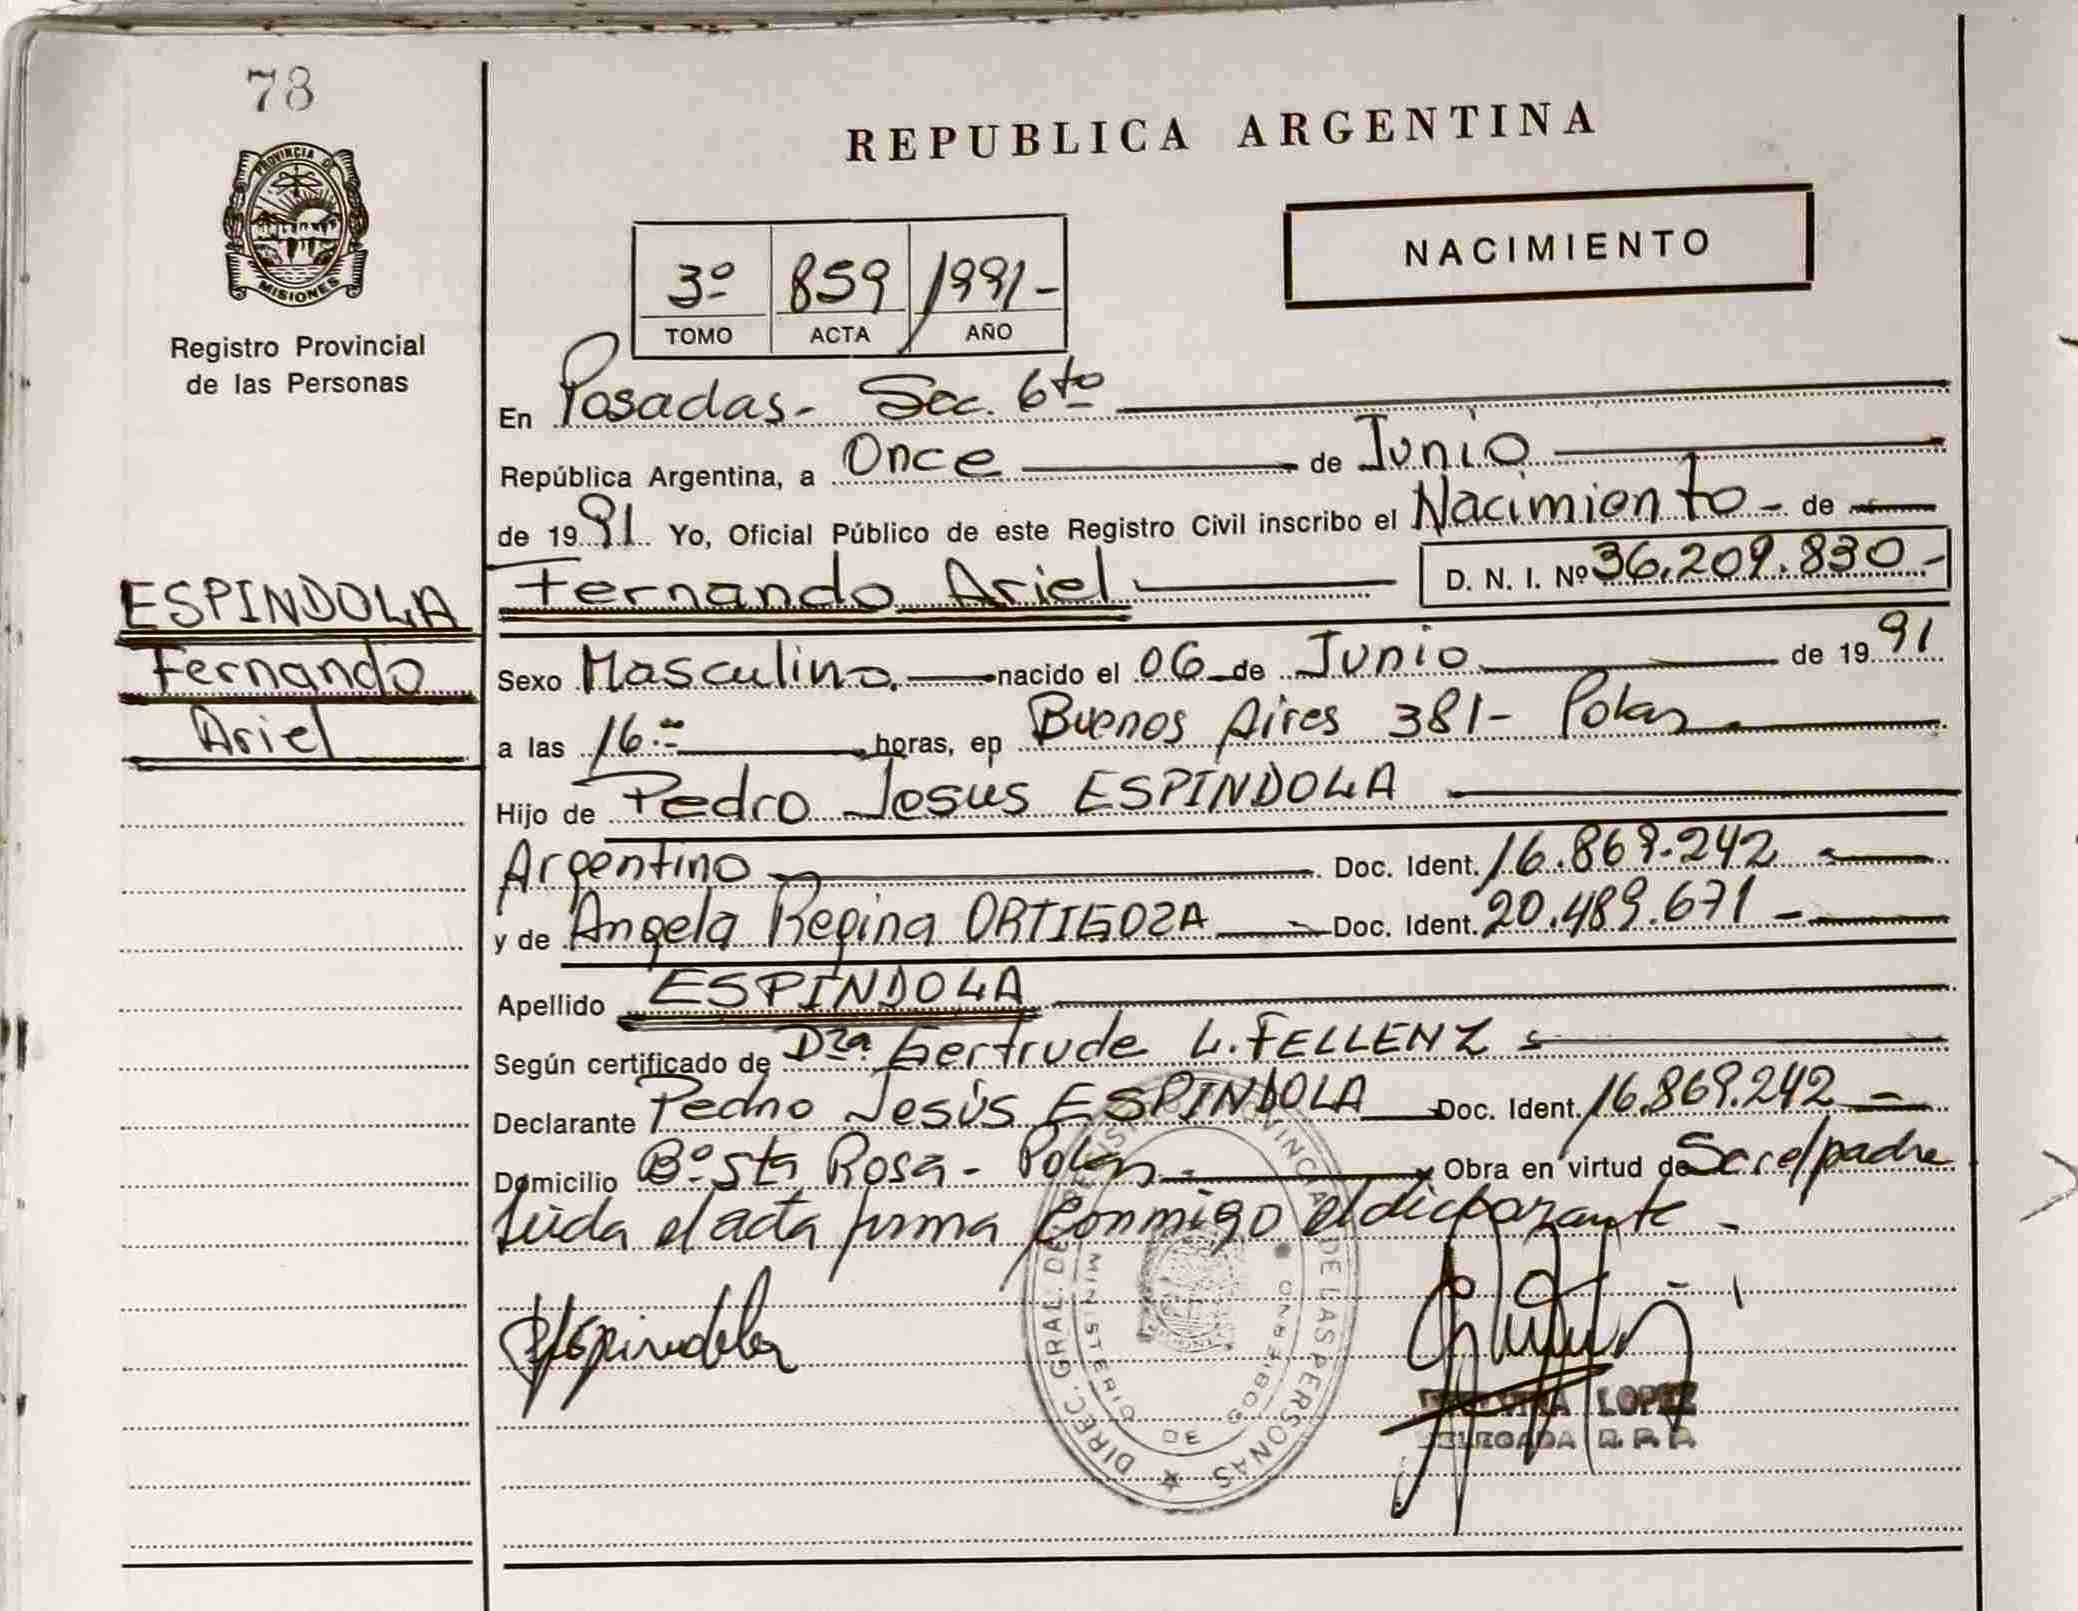 73
PROVINCIA DE
MISIONES
Registro Provincial
de las Personas
ESPINDOLA
Fernando
Ariel
REPUBLICA ARGENTINA
NACIMIENTO
3º 859 1991-
TOMO ACTA AÑO
En Posadas- Sec. 6to
República Argentina, a Once de Junio
de 1991 Yo, Oficial Público de este Registro Civil inscribo el Nacimiento - de
Fernando Ariel D. N. I. Nº 36.209.830-
Sexo Masculino. nacido el 06 de Junio de 1991
a las 16.- horas, en Buenos Aires 381- Pdas
Hijo de Pedro Jesus ESPINDOLA
Argentino Doc. Ident. 16.869.242
y de Angela Regina ORTIGOZA Doc. Ident. 20.489.671 -
Apellido ESPINDOLA
Según certificado de Dra. Gertrude L. FELLENZ
Declarante Pedro Jesús ESPINDOLA Doc. Ident. 16.869.242 -
Domicilio Bº Sta Rosa - Pdas - Obra en virtud de Ser el padre
Leida el acta firma conmigo el declarante -
DIREC. GRAL. DE LAS PERSONAS
MINISTERIO DE GOBIERNO
LOPEZ
DELEGADA R. P. P.